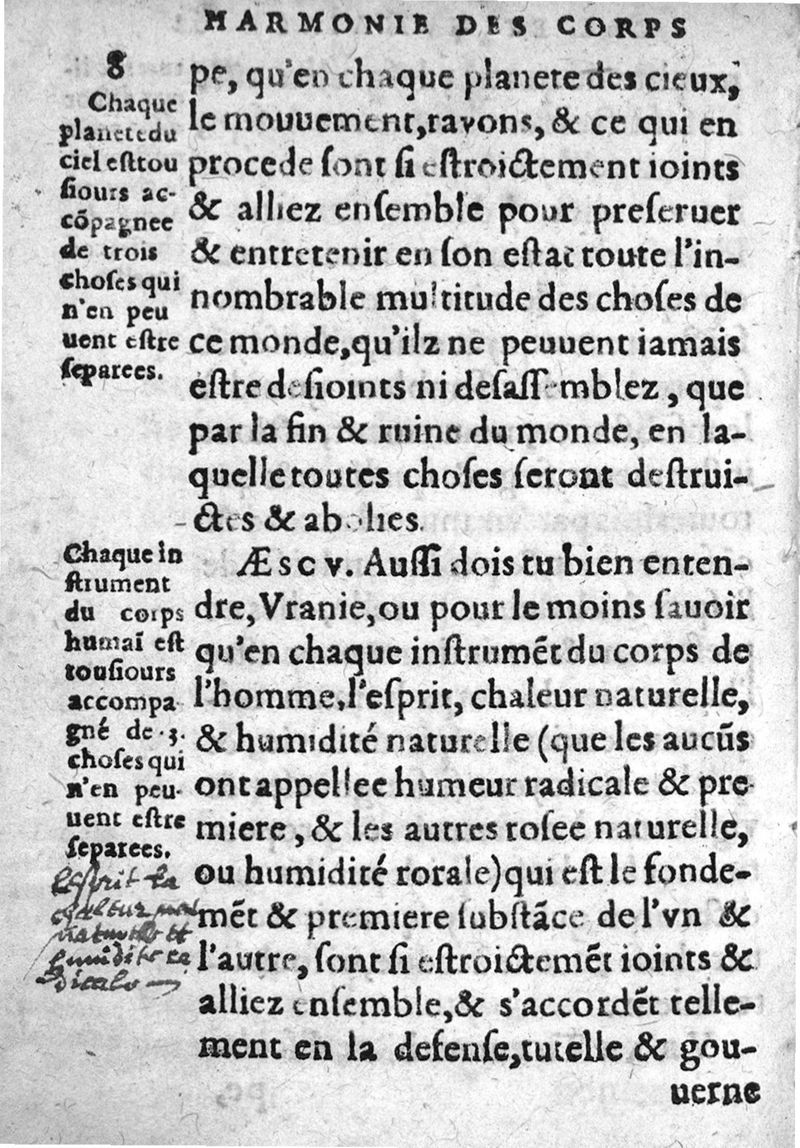 HARMONIE DES CORPS
8
Chaque
planete du
ciel est tou
siours ac-
cõpagnee
de trois
choses qui
n'en peu
uent estre
separees.
pe, qu'en chaque planete des cieux,
le mouuement, rayons, & ce qui en
procede sont si estroictement ioints
& alliez ensemble pour preseruer
& entretenir en son estat toute l'in-
nombrable multitude des choses de
ce monde, qu'ilz ne peuuent iamais
estre desioints ni desassemblez, que
par la fin & ruine du monde, en la-
quelle toutes choses seront destrui-
ctes & abolies.
Chaque in
strument
du corps
humaĩ est
tousiours
accompa
gné de .3.
choses qui
n'en peu-
uent estre
separees.
Lesprit la
chaleur
naturelle et
lumidite ra
dicale
ÆSCV. Aussi dois tu bien enten-
dre, Vranie, ou pour le moins sauoir
qu'en chaque instrumẽt du corps de
l'homme, l'esprit, chaleur naturelle,
& humidité naturelle (que les aucũs
ont appellee humeur radicale & pre-
miere, & les autres rosee naturelle,
ou humidité rorale) qui est le fonde-
mẽt & premiere substãce de l'vn &
l'autre, sont si estroictemẽt ioints &
alliez ensemble, & s'accordẽt telle-
ment en la defense, tutelle & gou-
uerne